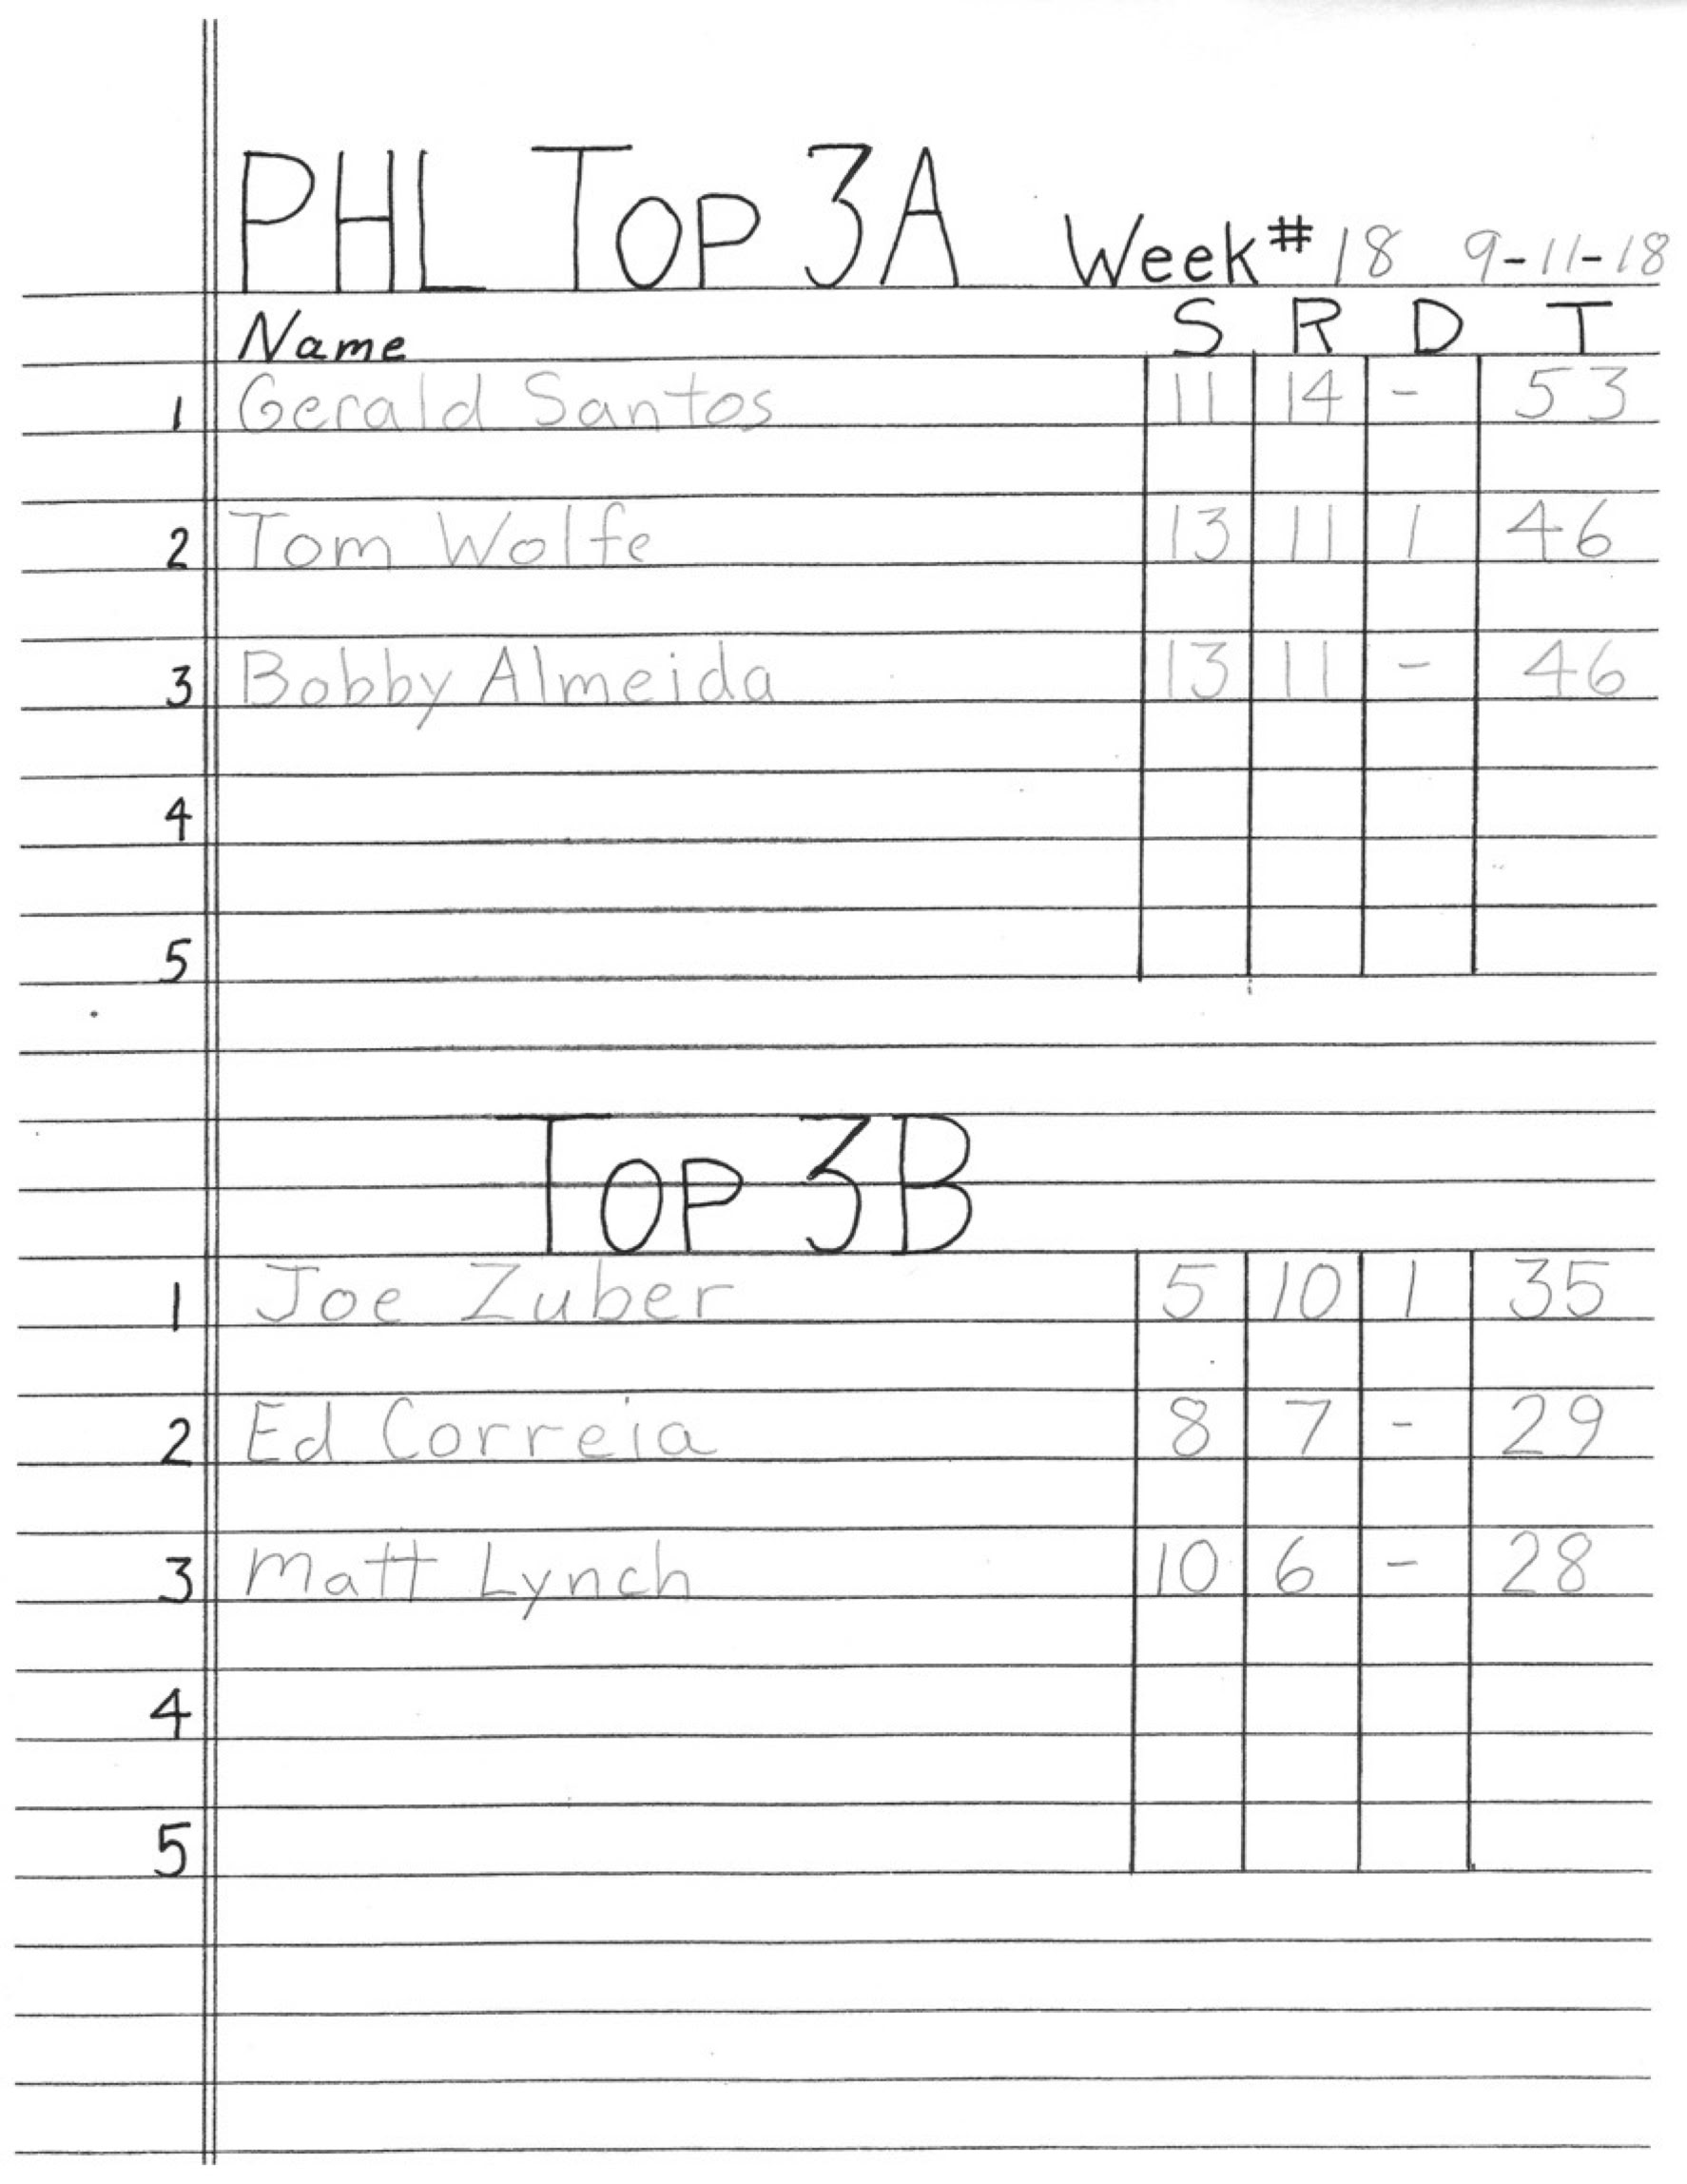 PHL Top 3A Week # 18 9-11-18
Name S R D T
1 Gerald Santos 11 14 - 53
2 Tom Wolfe 13 11 1 46
3 Bobby Almeida 13 11 - 46
4
5
Top 3B
1 Joe Zuber 5 10 1 35
2 Ed Correia 8 7 - 29
3 Matt Lynch 10 6 - 28
4
5